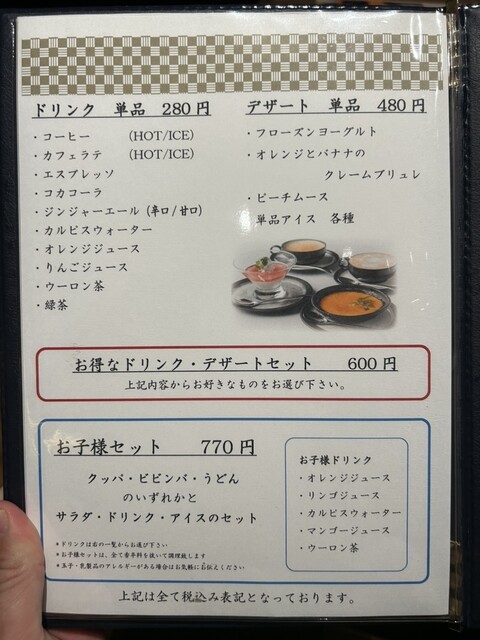 ドリンク 単品 280円
・コーヒー (HOT/ICE)
・カフェラテ (HOT/ICE)
・エスプレッソ
・コカコーラ
・ジンジャーエール (辛口/甘口)
・カルピスウォーター
・オレンジジュース
・りんごジュース
・ウーロン茶
・緑茶
デザート 単品 480円
・フローズンヨーグルト
・オレンジとバナナの
クレームブリュレ
・ピーチムース
単品アイス 各種
お得なドリンク・デザートセット 600円
上記内容からお好きなものをお選び下さい。
お子様セット 770円
クッパ・ビビンバ・うどん
のいずれかと
サラダ・ドリンク・アイスのセット
*ドリンクは右の一覧からお選び下さい
*お子様セットは、全て香辛料を抜いて調理致します
*玉子・乳製品のアレルギーがある場合はお気軽にお伝えください
お子様ドリンク
・オレンジジュース
・リンゴジュース
・カルピスウォーター
・マンゴージュース
・ウーロン茶
上記は全て税込み表記となっております。